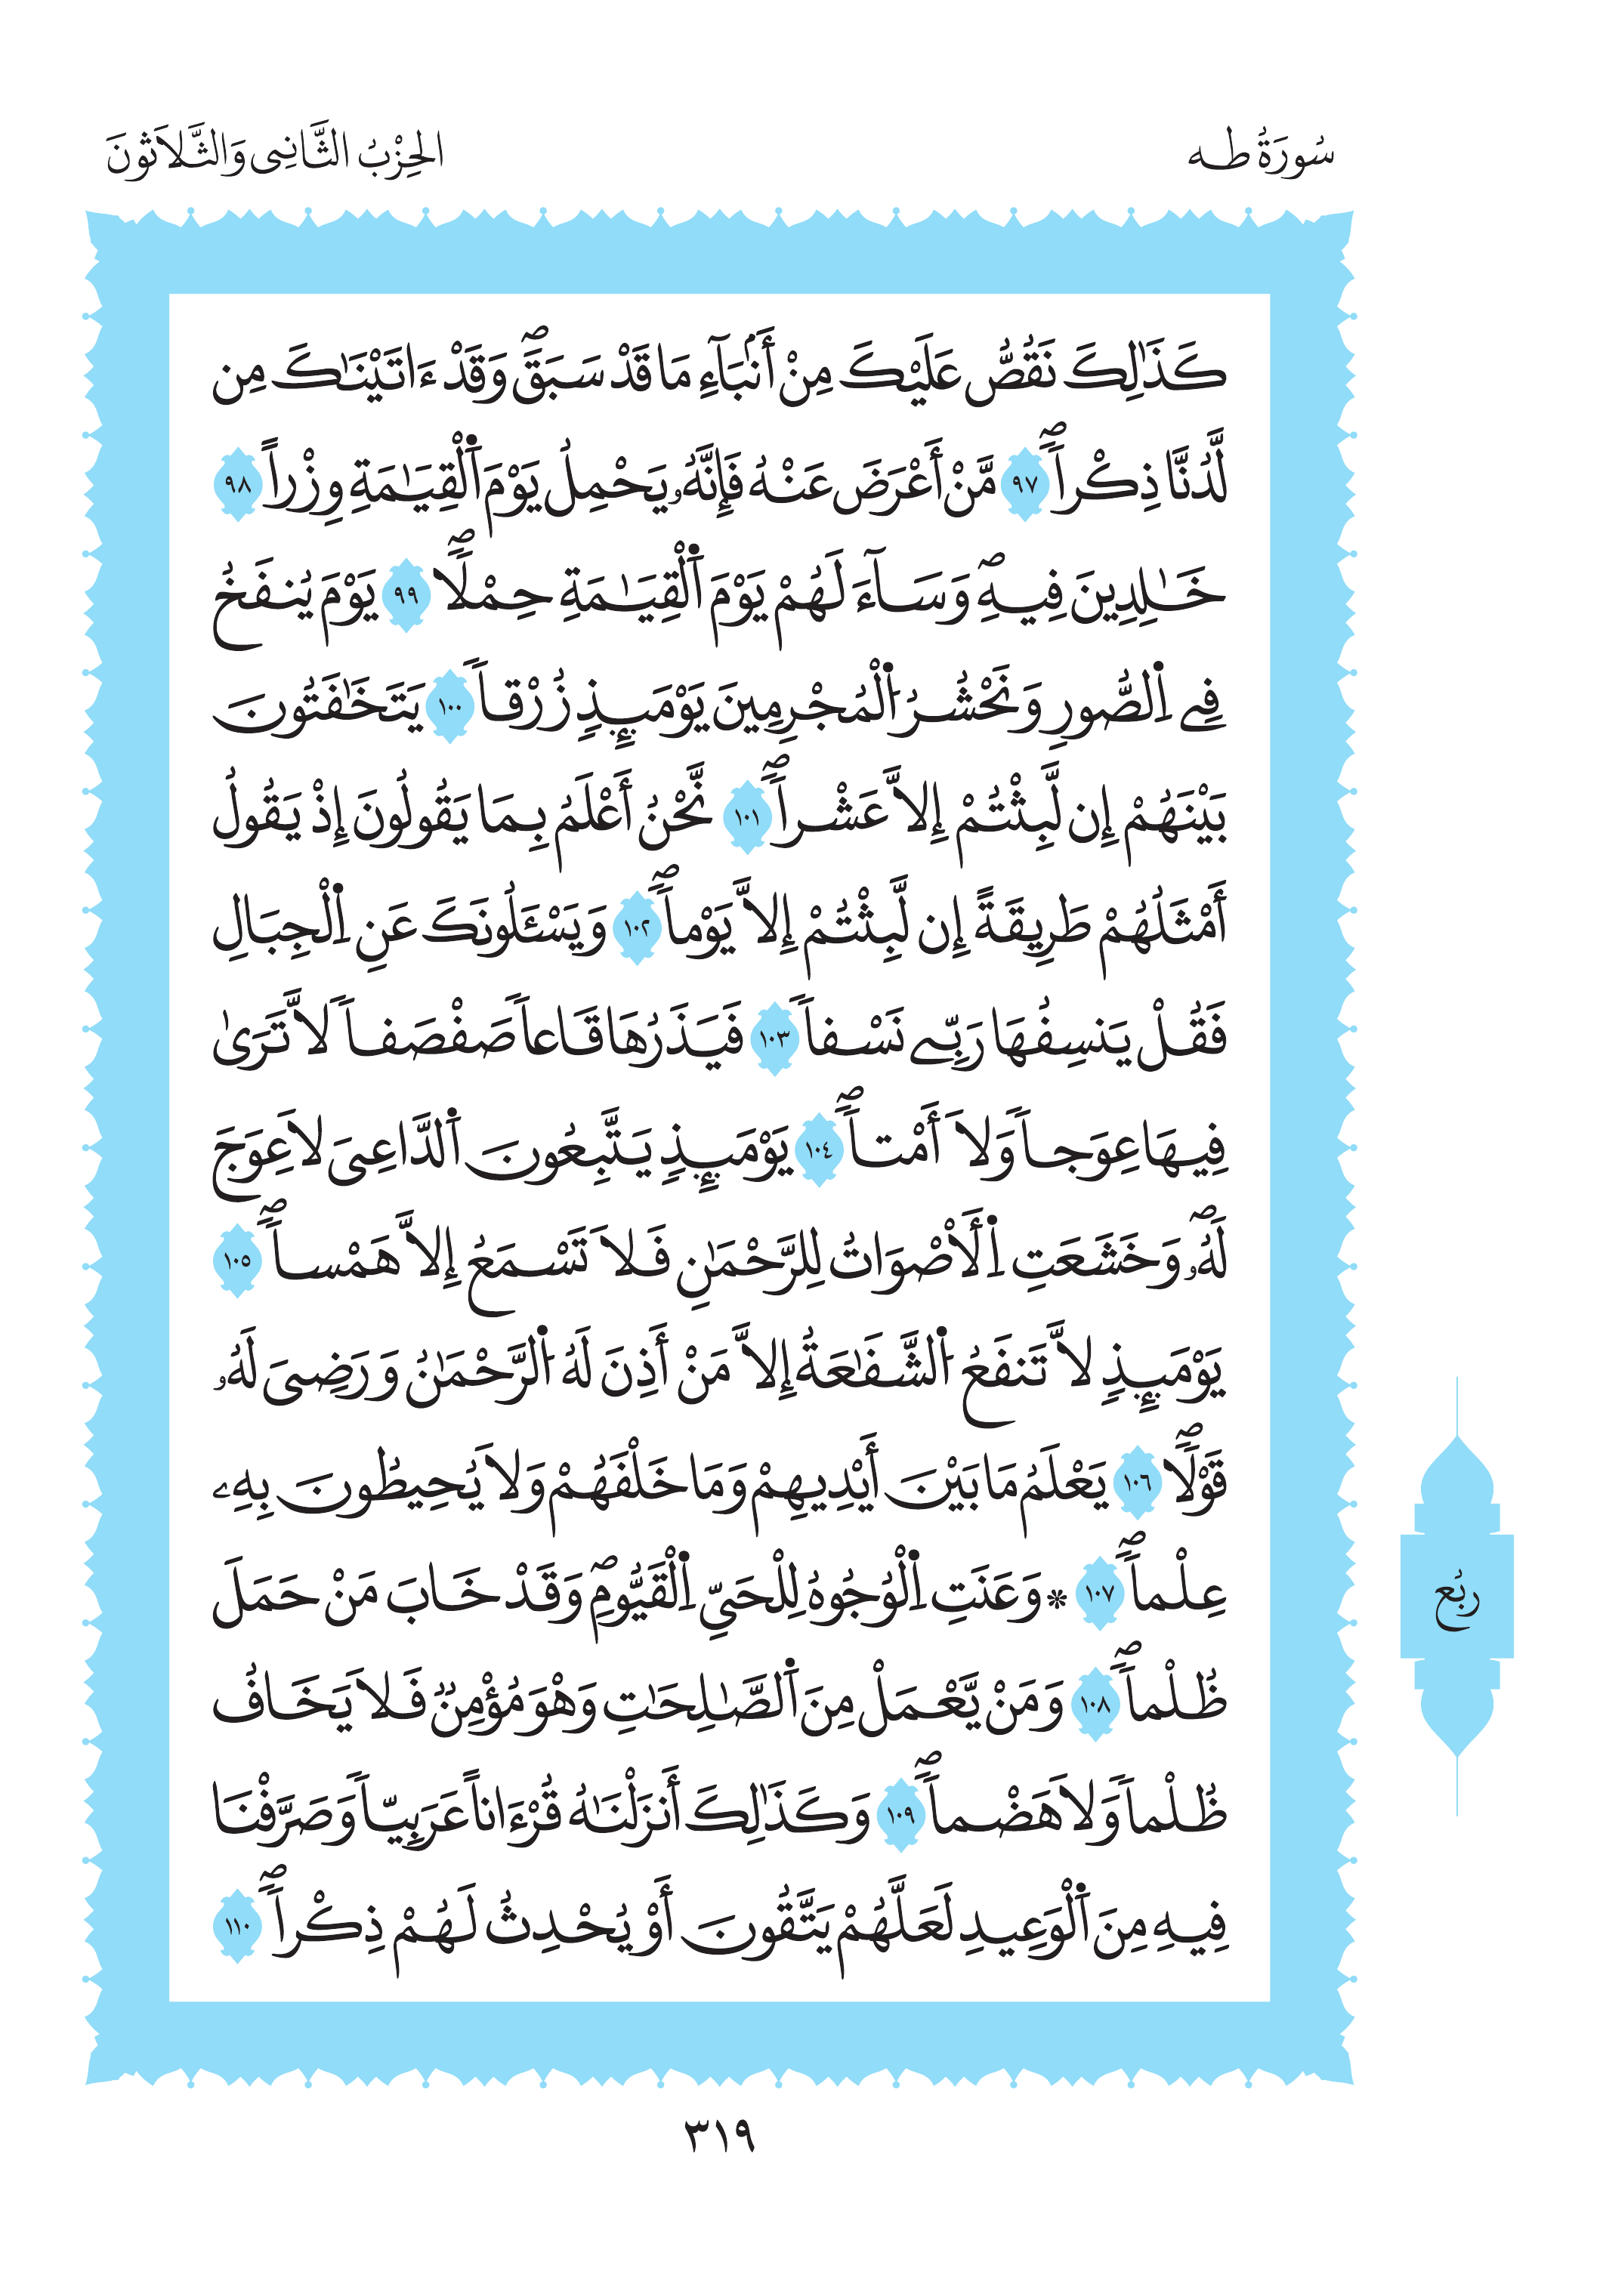 سُورَةُ طـه
الحِزْبُ الثَّانِي وَالثَّلَاثُونَ
كَذَٰلِكَ نَقُصُّ عَلَيْكَ مِنْ أَنۢبَآءِ مَا قَدْ سَبَقَۖ وَقَدْ ءَاتَيْنَٰكَ مِن
لَّدُنَّا ذِكْراٗۖ ٩٧ مَّنْ أَعْرَضَ عَنْهُ فَإِنَّهُۥ يَحْمِلُ يَوْمَ اَ۬لْقِيَٰمَةِ وِزْراً ٩٨
خَٰلِدِينَ فِيهِۖ وَسَآءَ لَهُمْ يَوْمَ اَ۬لْقِيَٰمَةِ حِمْلاٗۖ ٩٩ يَوْمَ يُنفَخُ
فِے اِ۬لصُّورِ وَنَحْشُرُ اُ۬لْمُجْرِمِينَ يَوْمَئِذٖ زُرْقاٗ ١٠٠ يَتَخَٰفَتُونَ
بَيْنَهُمْ إِن لَّبِثْتُمْ إِلاَّ عَشْراٗۖ ١٠١ نَّحْنُ أَعْلَمُ بِمَا يَقُولُونَ إِذْ يَقُولُ
أَمْثَلُهُمْ طَرِيقَةً إِن لَّبِثْتُمْ إِلاَّ يَوْماٗۖ ١٠٢ وَيَسْـَٔلُونَكَ عَنِ اِ۬لْجِبَالِ
فَقُلْ يَنسِفُهَا رَبِّے نَسْفاٗ ١٠٣ فَيَذَرُهَا قَاعاٗ صَفْصَفاٗ لاَّ تَرَىٰ
فِيهَا عِوَجاٗ وَلَا أَمْتاٗۖ ١٠٤ يَوْمَئِذٖ يَتَّبِعُونَ اَ۬لدَّاعِيَ لَا عِوَجَ
لَهُۥۖ وَخَشَعَتِ اِ۬لْأَصْوَاتُ لِلرَّحْمَٰنِ فَلَا تَسْمَعُ إِلاَّ هَمْساٗۖ ١٠٥
يَوْمَئِذٖ لاَّ تَنفَعُ اُ۬لشَّفَٰعَةُ إِلاَّ مَنْ أَذِنَ لَهُ اُ۬لرَّحْمَٰنُ وَرَضِيَ لَهُۥ
قَوْلاٗۖ ١٠٦ يَعْلَمُ مَا بَيْنَ أَيْدِيهِمْ وَمَا خَلْفَهُمْ وَلَا يُحِيطُونَ بِهِۦ
عِلْماٗۖ ١٠٧ * وَعَنَتِ اِ۬لْوُجُوهُ لِلْحَيِّ اِ۬لْقَيُّومِۖ وَقَدْ خَابَ مَنْ حَمَلَ
ظُلْماٗۖ ١٠٨ وَمَنْ يَّعْمَلْ مِنَ اَ۬لصَّٰلِحَٰتِ وَهْوَ مُؤْمِنٞ فَلَا يَخَافُ
ظُلْماٗ وَلَا هَضْماٗۖ ١٠٩ وَكَذَٰلِكَ أَنزَلْنَٰهُ قُرْءَاناً عَرَبِيّاٗ وَصَرَّفْنَا
فِيهِ مِنَ اَ۬لْوَعِيدِ لَعَلَّهُمْ يَتَّقُونَ أَوْ يُحْدِثُ لَهُمْ ذِكْراٗۖ ١١٠
ربُع
٣١٩